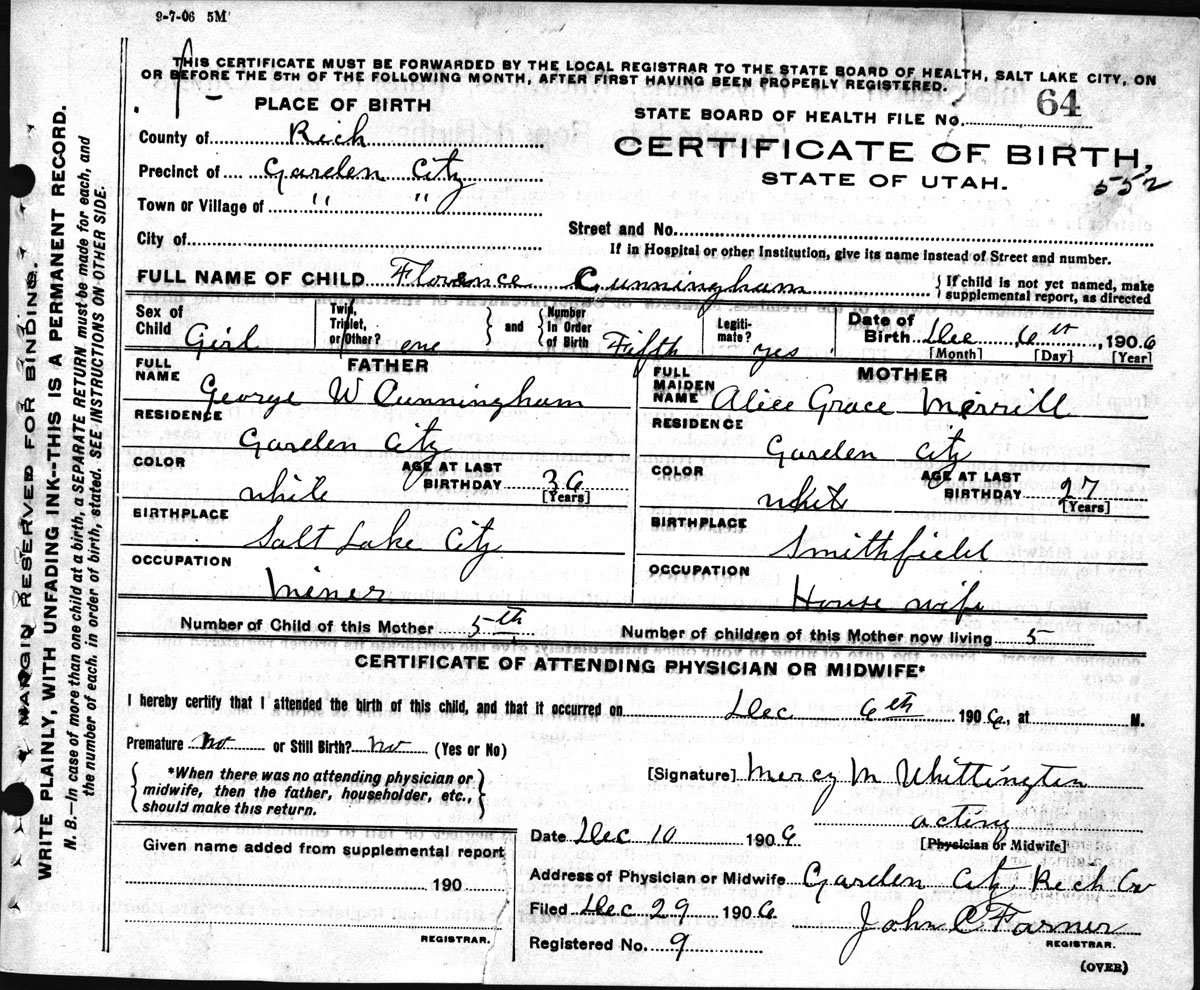 9-7-06 5M
THIS CERTIFICATE MUST BE FORWARDED BY THE LOCAL REGISTRAR TO THE STATE BOARD OF HEALTH, SALT LAKE CITY, ON
OR BEFORE THE 5TH OF THE FOLLOWING MONTH, AFTER FIRST HAVING BEEN PROPERLY REGISTERED.
PLACE OF BIRTH
STATE BOARD OF HEALTH FILE No. 64
County of Rich
CERTIFICATE OF BIRTH,
Precinct of Garden City
STATE OF UTAH.
552
Town or Village of " "
Street and No.
City of
If in Hospital or other Institution, give its name instead of Street and number.
FULL NAME OF CHILD Florence Cunningham
{ If child is not yet named, make supplemental report, as directed
Sex of Child Girl
Twin, Triplet, or Other? one } and { Number In Order of Birth Fifth
Legitimate? yes
Date of Birth Dec 6th, 1906
[Month] [Day] [Year]
FATHER
MOTHER
FULL NAME George W Cunningham
FULL MAIDEN NAME Alice Grace Merrill
RESIDENCE Garden City
RESIDENCE Garden City
COLOR white
AGE AT LAST BIRTHDAY 36 [Years]
COLOR white
AGE AT LAST BIRTHDAY 27 [Years]
BIRTHPLACE Salt Lake City
BIRTHPLACE Smithfield
OCCUPATION Miner
OCCUPATION House wife
Number of Child of this Mother 5th
Number of children of this Mother now living 5
CERTIFICATE OF ATTENDING PHYSICIAN OR MIDWIFE*
I hereby certify that I attended the birth of this child, and that it occurred on Dec 6th 1906, at M.
Premature no or Still Birth? no (Yes or No)
{ *When there was no attending physician or midwife, then the father, householder, etc., should make this return. }
[Signature] Mercy M Whittington
acting
Date Dec 10 1906
[Physician or Midwife]
Given name added from supplemental report
190
REGISTRAR.
Address of Physician or Midwife Garden City Rich Co
Filed Dec 29 1906
John C Farner
REGISTRAR.
Registered No. 9
(OVER)
MARGIN RESERVED FOR BINDING.
WRITE PLAINLY, WITH UNFADING INK--THIS IS A PERMANENT RECORD.
N. B.--In case of more than one child at a birth, a SEPARATE RETURN must be made for each, and
the number of each, in order of birth, stated. SEE INSTRUCTIONS ON OTHER SIDE.